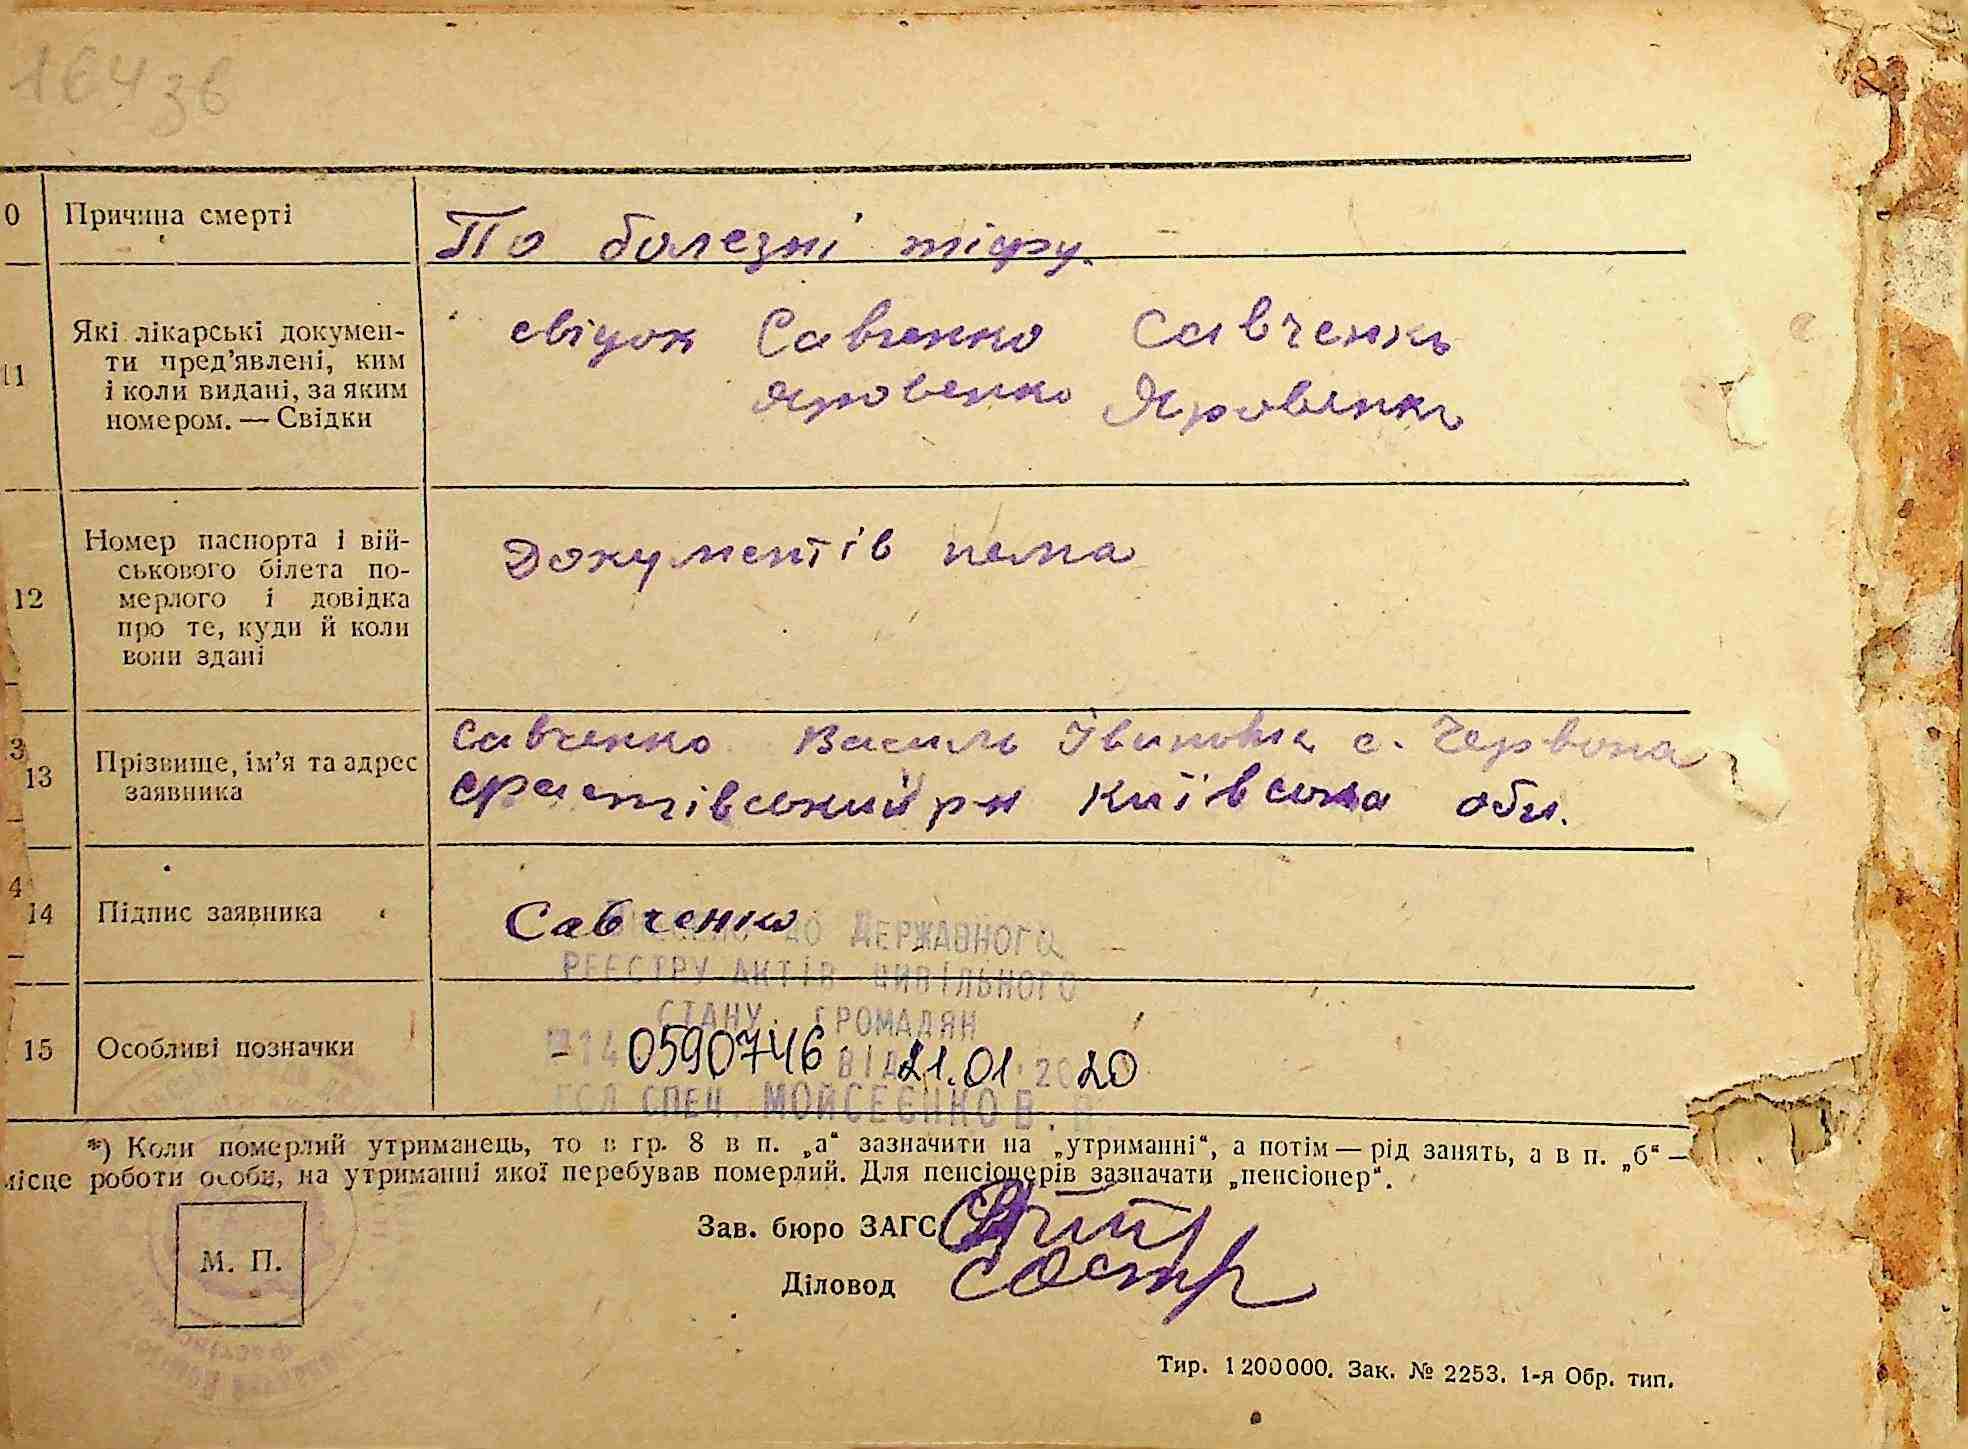 164 зв
0 Причина смерті По болезні тіфу.
11 Які лікарські докумен-
ти пред’явлені, ким
і коли видані, за яким
номером. — Свідки
свідок Савченко Савченко
Яровенко Яровенко
12 Номер паспорта і вій-
ськового білета по-
мерлого і довідка
про те, куди й коли
вони здані
Документів нема
3
13 Прізвище, ім’я та адрес
заявника
Савченко Василь Івановіч с. Червона
Фастівський р-н Київська обл.
4
14 Підпис заявника Савченко
ДО ДЕРЖАВНОГО
РЕЄСТРУ АКТІВ ЦИВІЛЬНОГО
СТАНУ ГРОМАДЯН
15 Особливі позначки
14 0590746 ВІД 21.01.2020
СПЕЦ. МОЙСЕЄНКО В. В
*) Коли померлий утриманець, то в гр. 8 в п. „а“ зазначити на „утриманні“, а потім — рід занять, а в п. „б“ —
місце роботи особи, на утриманні якої перебував померлий. Для пенсіонерів зазначати „пенсіонер“.
Зав. бюро ЗАГС
М. П.
Діловод
Тир. 1200000. Зак. № 2253. 1-я Обр. тип.